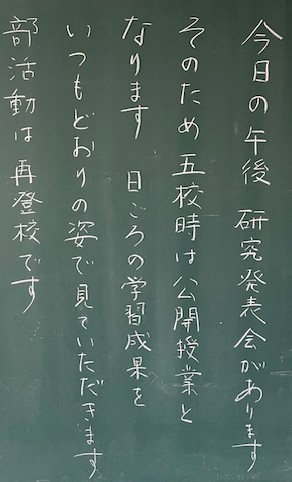 今日の午後　研究発表会があります
そのため　五校時は公開授業と
なります　日ごろの学習成果を
いつもどおりの姿で見ていただきます
部活動は　再登校です